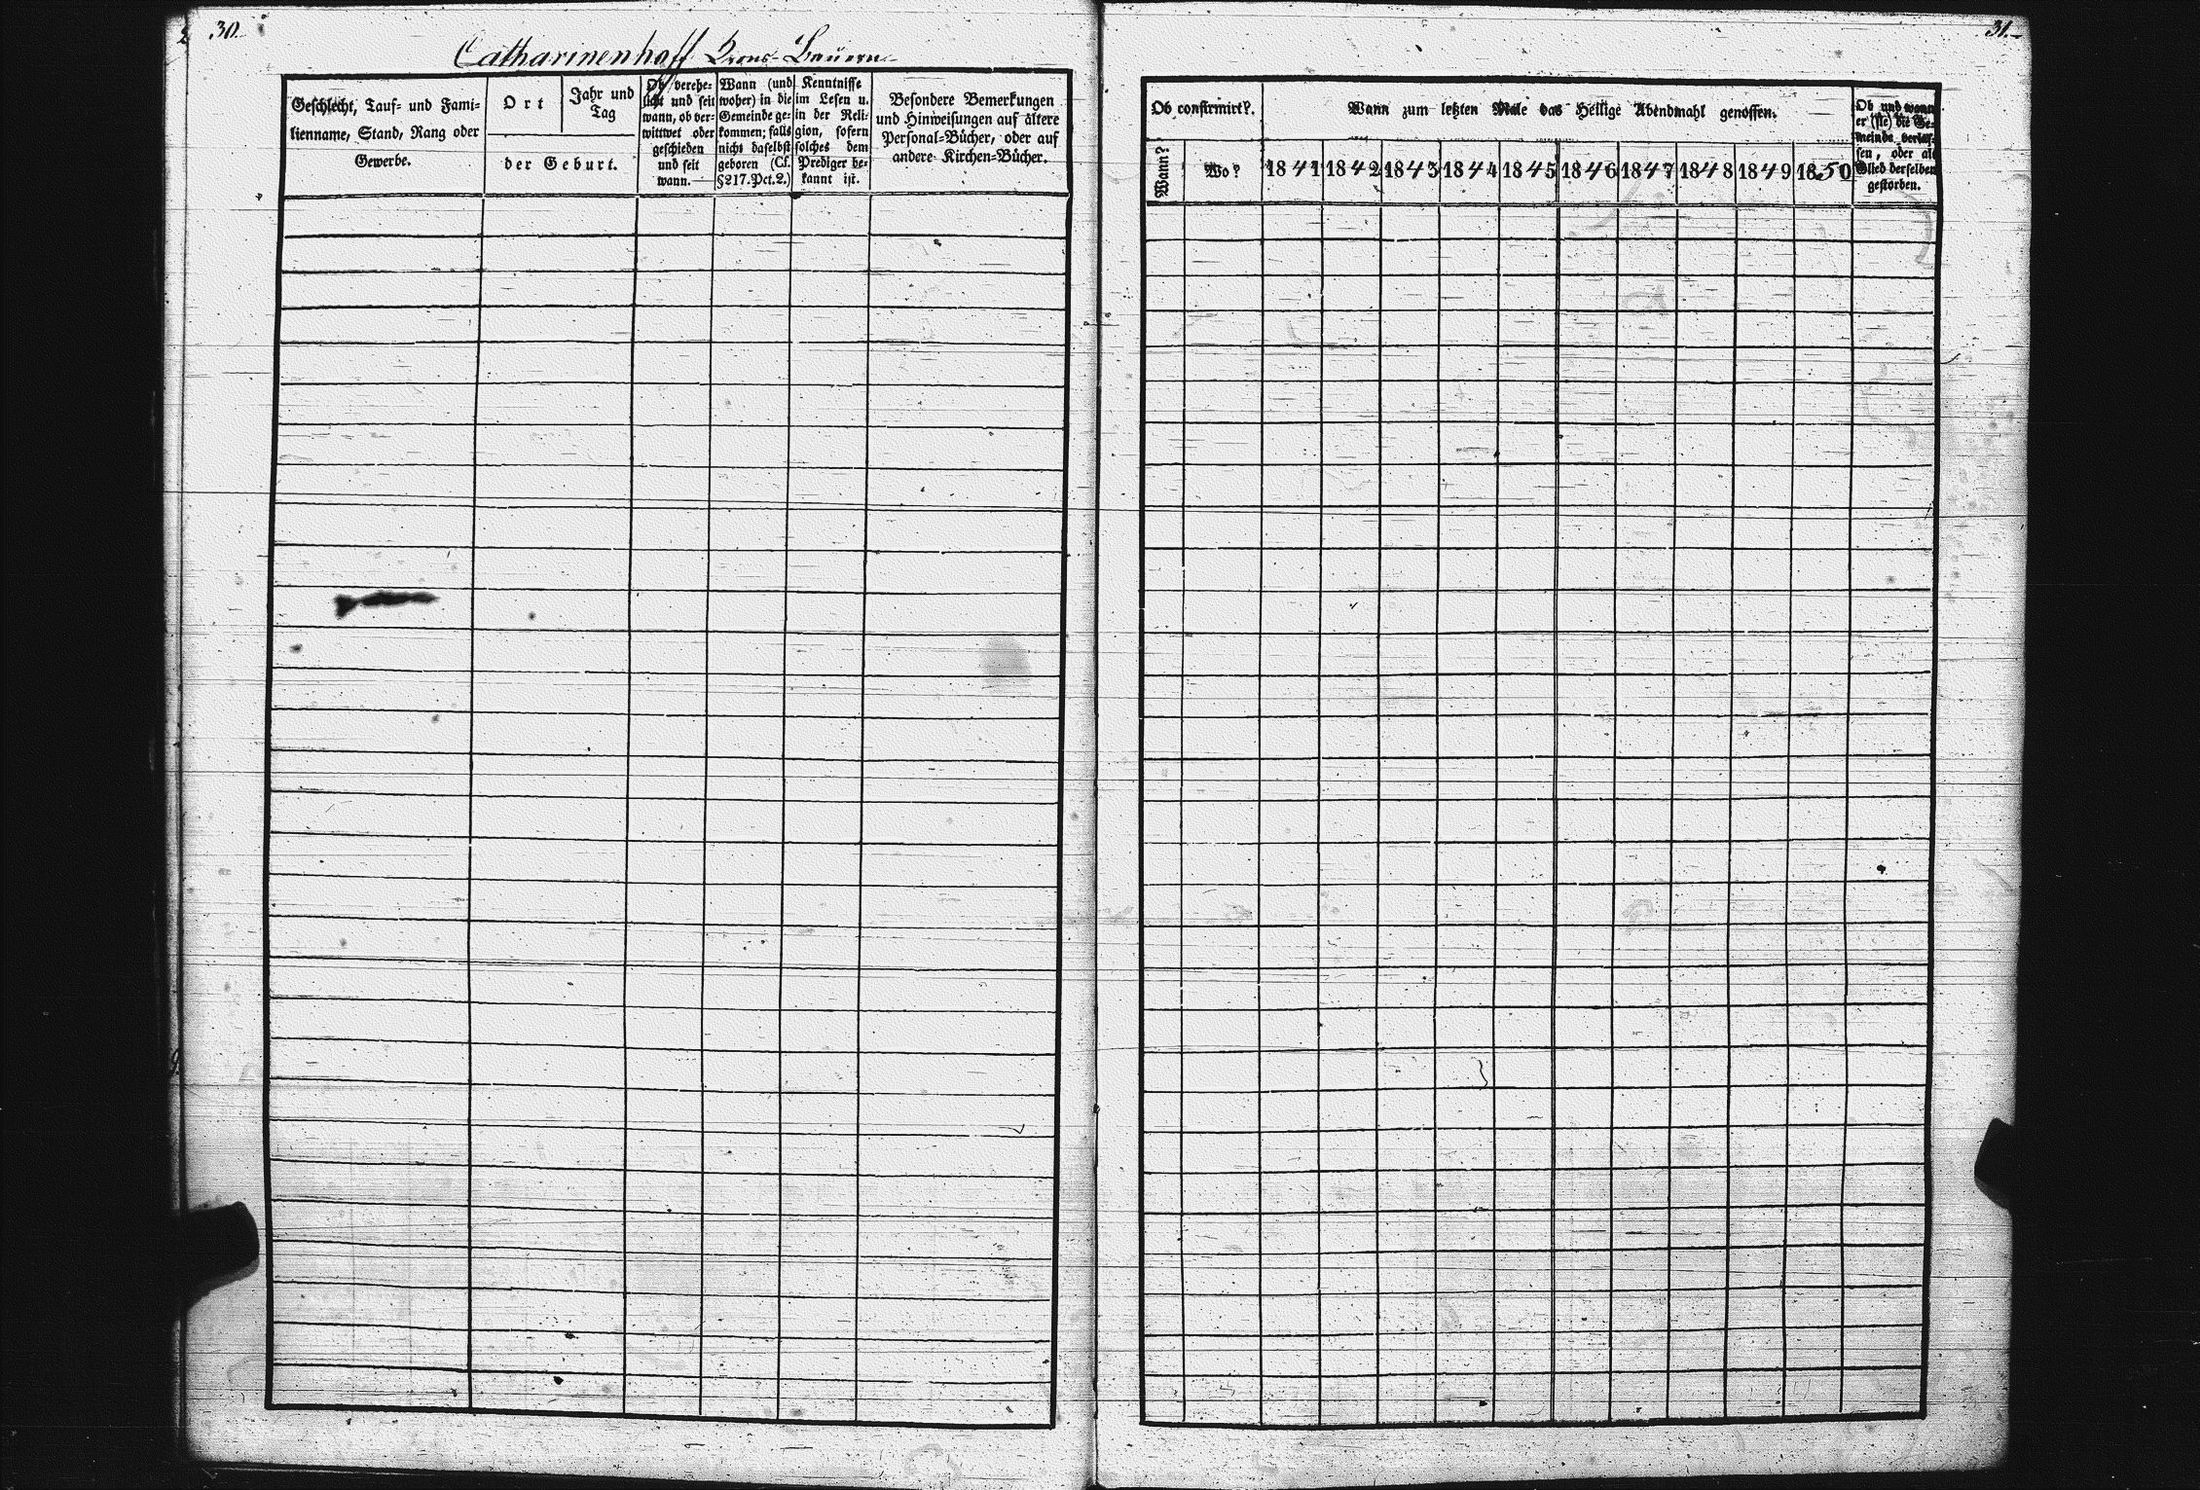 30.
Catharinenhoff Krons-Bauern
Geschlecht, Tauf- und Fami-
lienname, Stand, Rang oder
Gewerbe.
Ort
Jahr und
Tag
der Geburt.
Ob verehe-
licht und seit
wann, ob ver-
wittwet oder
geschieden
und seit
wann.
Wann (und
woher) in die
Gemeinde ge-
kommen; falls
nicht daselbst
geboren (Cf.
§217.Pct.2.)
Kenntnisse
im Lesen u.
in der Reli-
gion, sofern
solches dem
Prediger be-
kannt ist.
Besondere Bemerkungen
und Hinweisungen auf ältere
Personal-Bücher, oder auf
andere Kirchen-Bücher.
31.
Ob confirmirt?
Wann?
Wo?
Wann zum letzten Male das Heilige Abendmahl genossen.
1841 1842 1843 1844 1845 1846 1847 1848 1849 1850
Ob und wann
er (sie) die Ge-
meinde verlas-
sen, oder als
Glied derselben
gestorben.